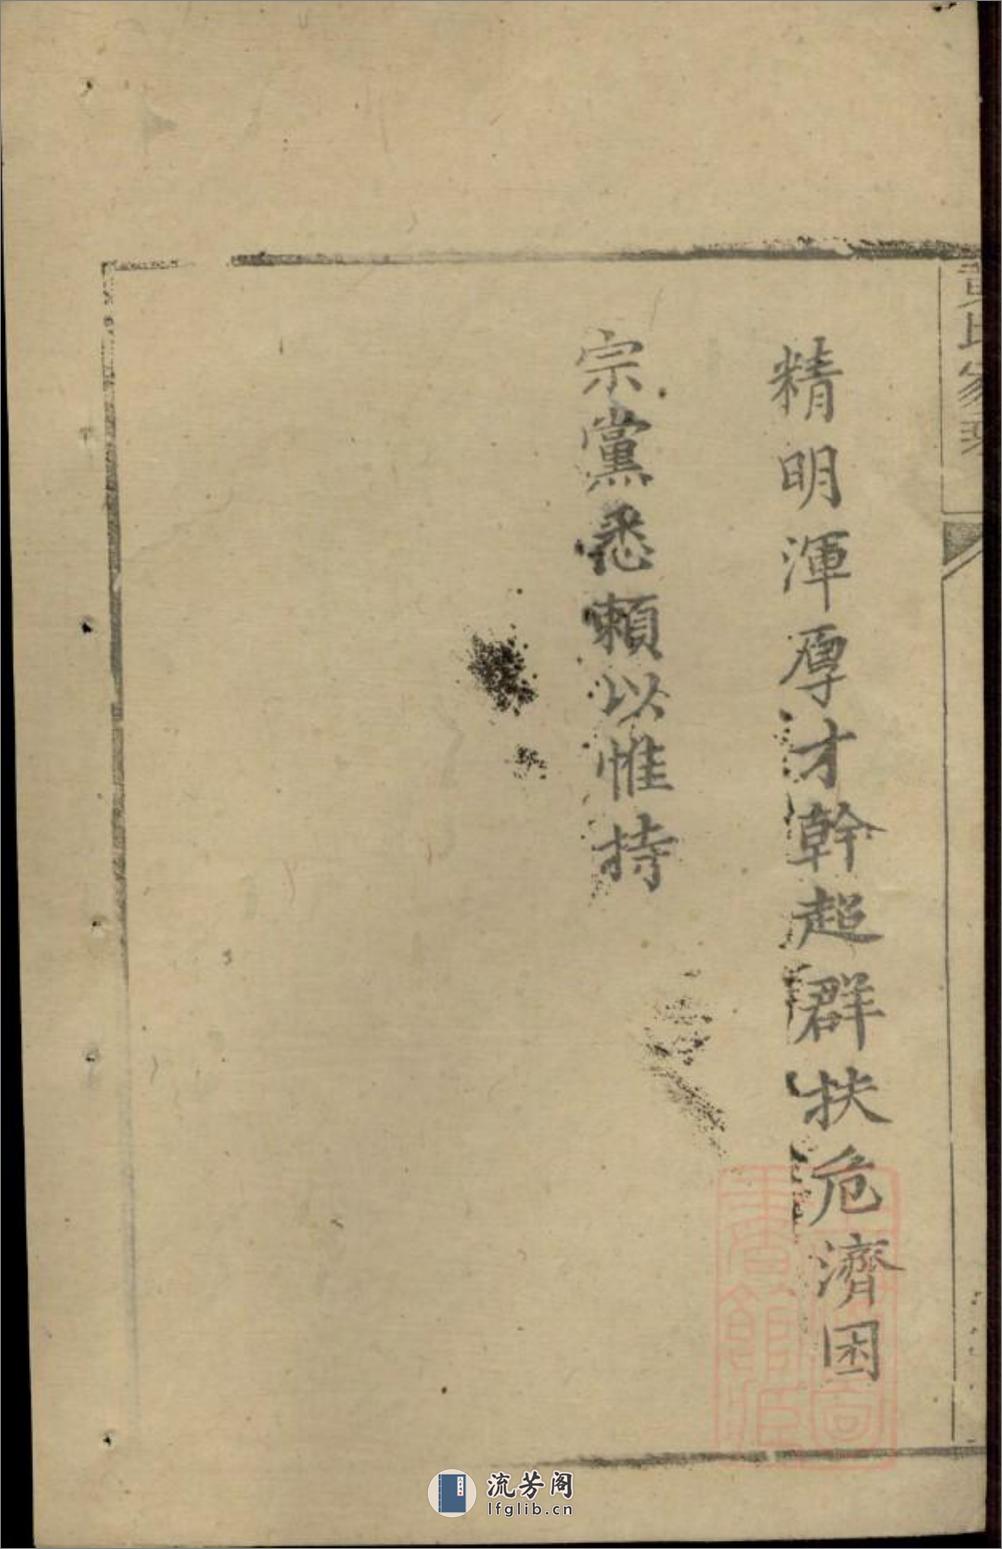 黄氏家乘
精明渾厚才幹超群扶危濟困
宗黨悉賴以惟持
流芳阁
lfglib.cn